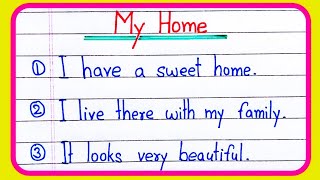 My Home
① I have a sweet home.
② I live there with my family.
③ It looks very beautiful.